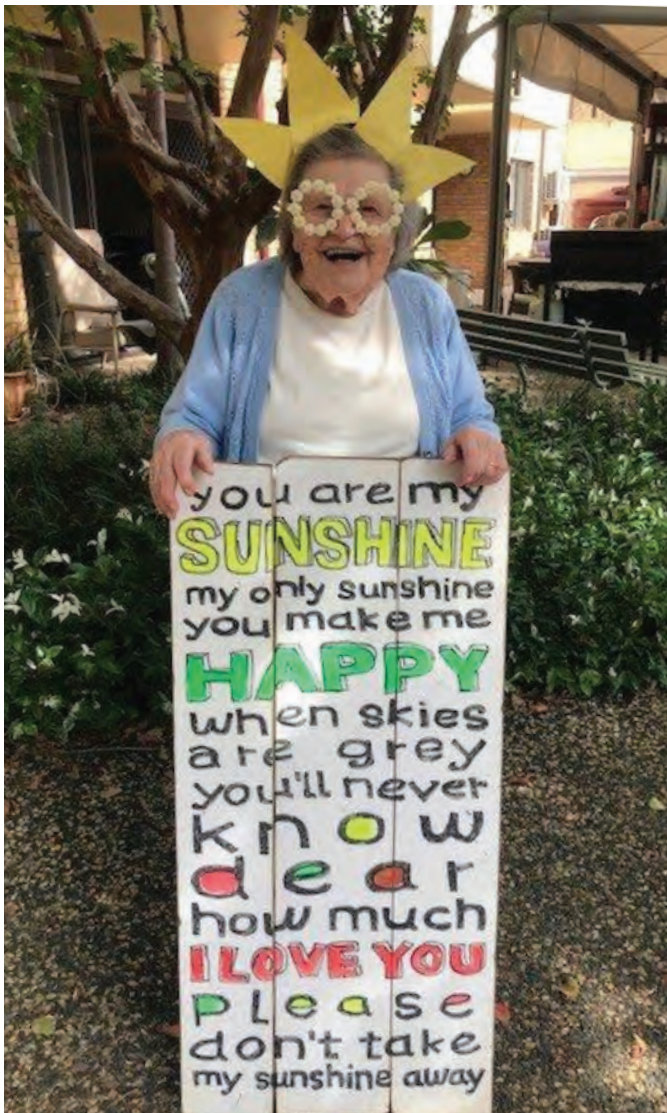 you are my
SUNSHINE
my only sunshine
you make me
HAPPY
when skies
are grey
you'll never
know
dear
how much
I LOVE YOU
please
don't take
my sunshine away